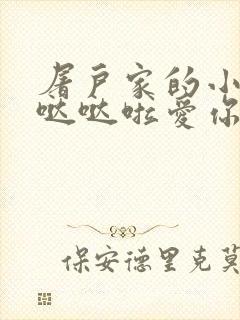 屠户家的小
哒哒啦爱你
保安德里克莫